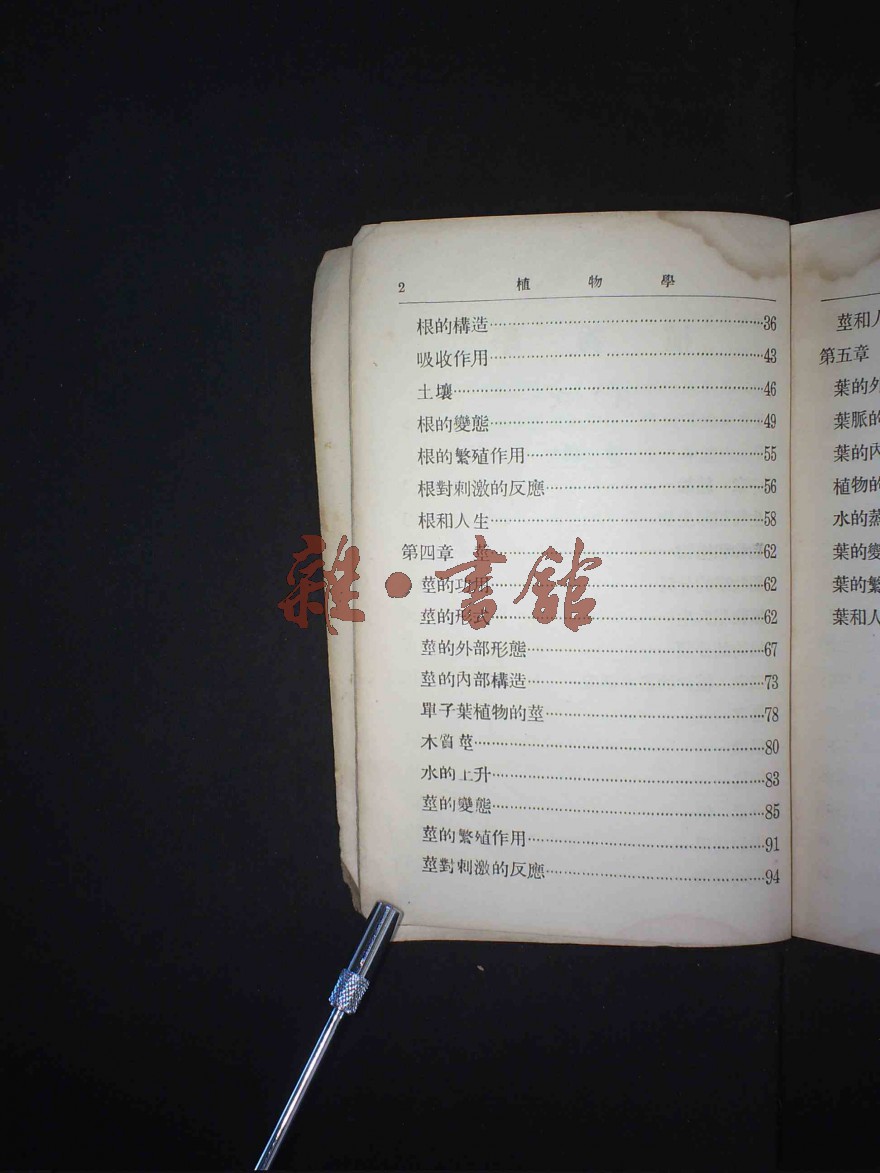 2 植物學
根的構造……36
吸收作用……43
土壤……46
根的變態……49
根的繁殖作用……55
根對刺激的反應……56
根和人生……58
第四章 莖……62
莖的功用……62
莖的形式……62
莖的外部形態……67
莖的內部構造……73
單子葉植物的莖……78
木質莖……80
水的上升……83
莖的變態……85
莖的繁殖作用……91
莖對刺激的反應……94
莖和人
第五章
葉的外
葉脈的
葉的內
植物的
水的蒸
葉的變
葉的繁
葉和人
雜·書館